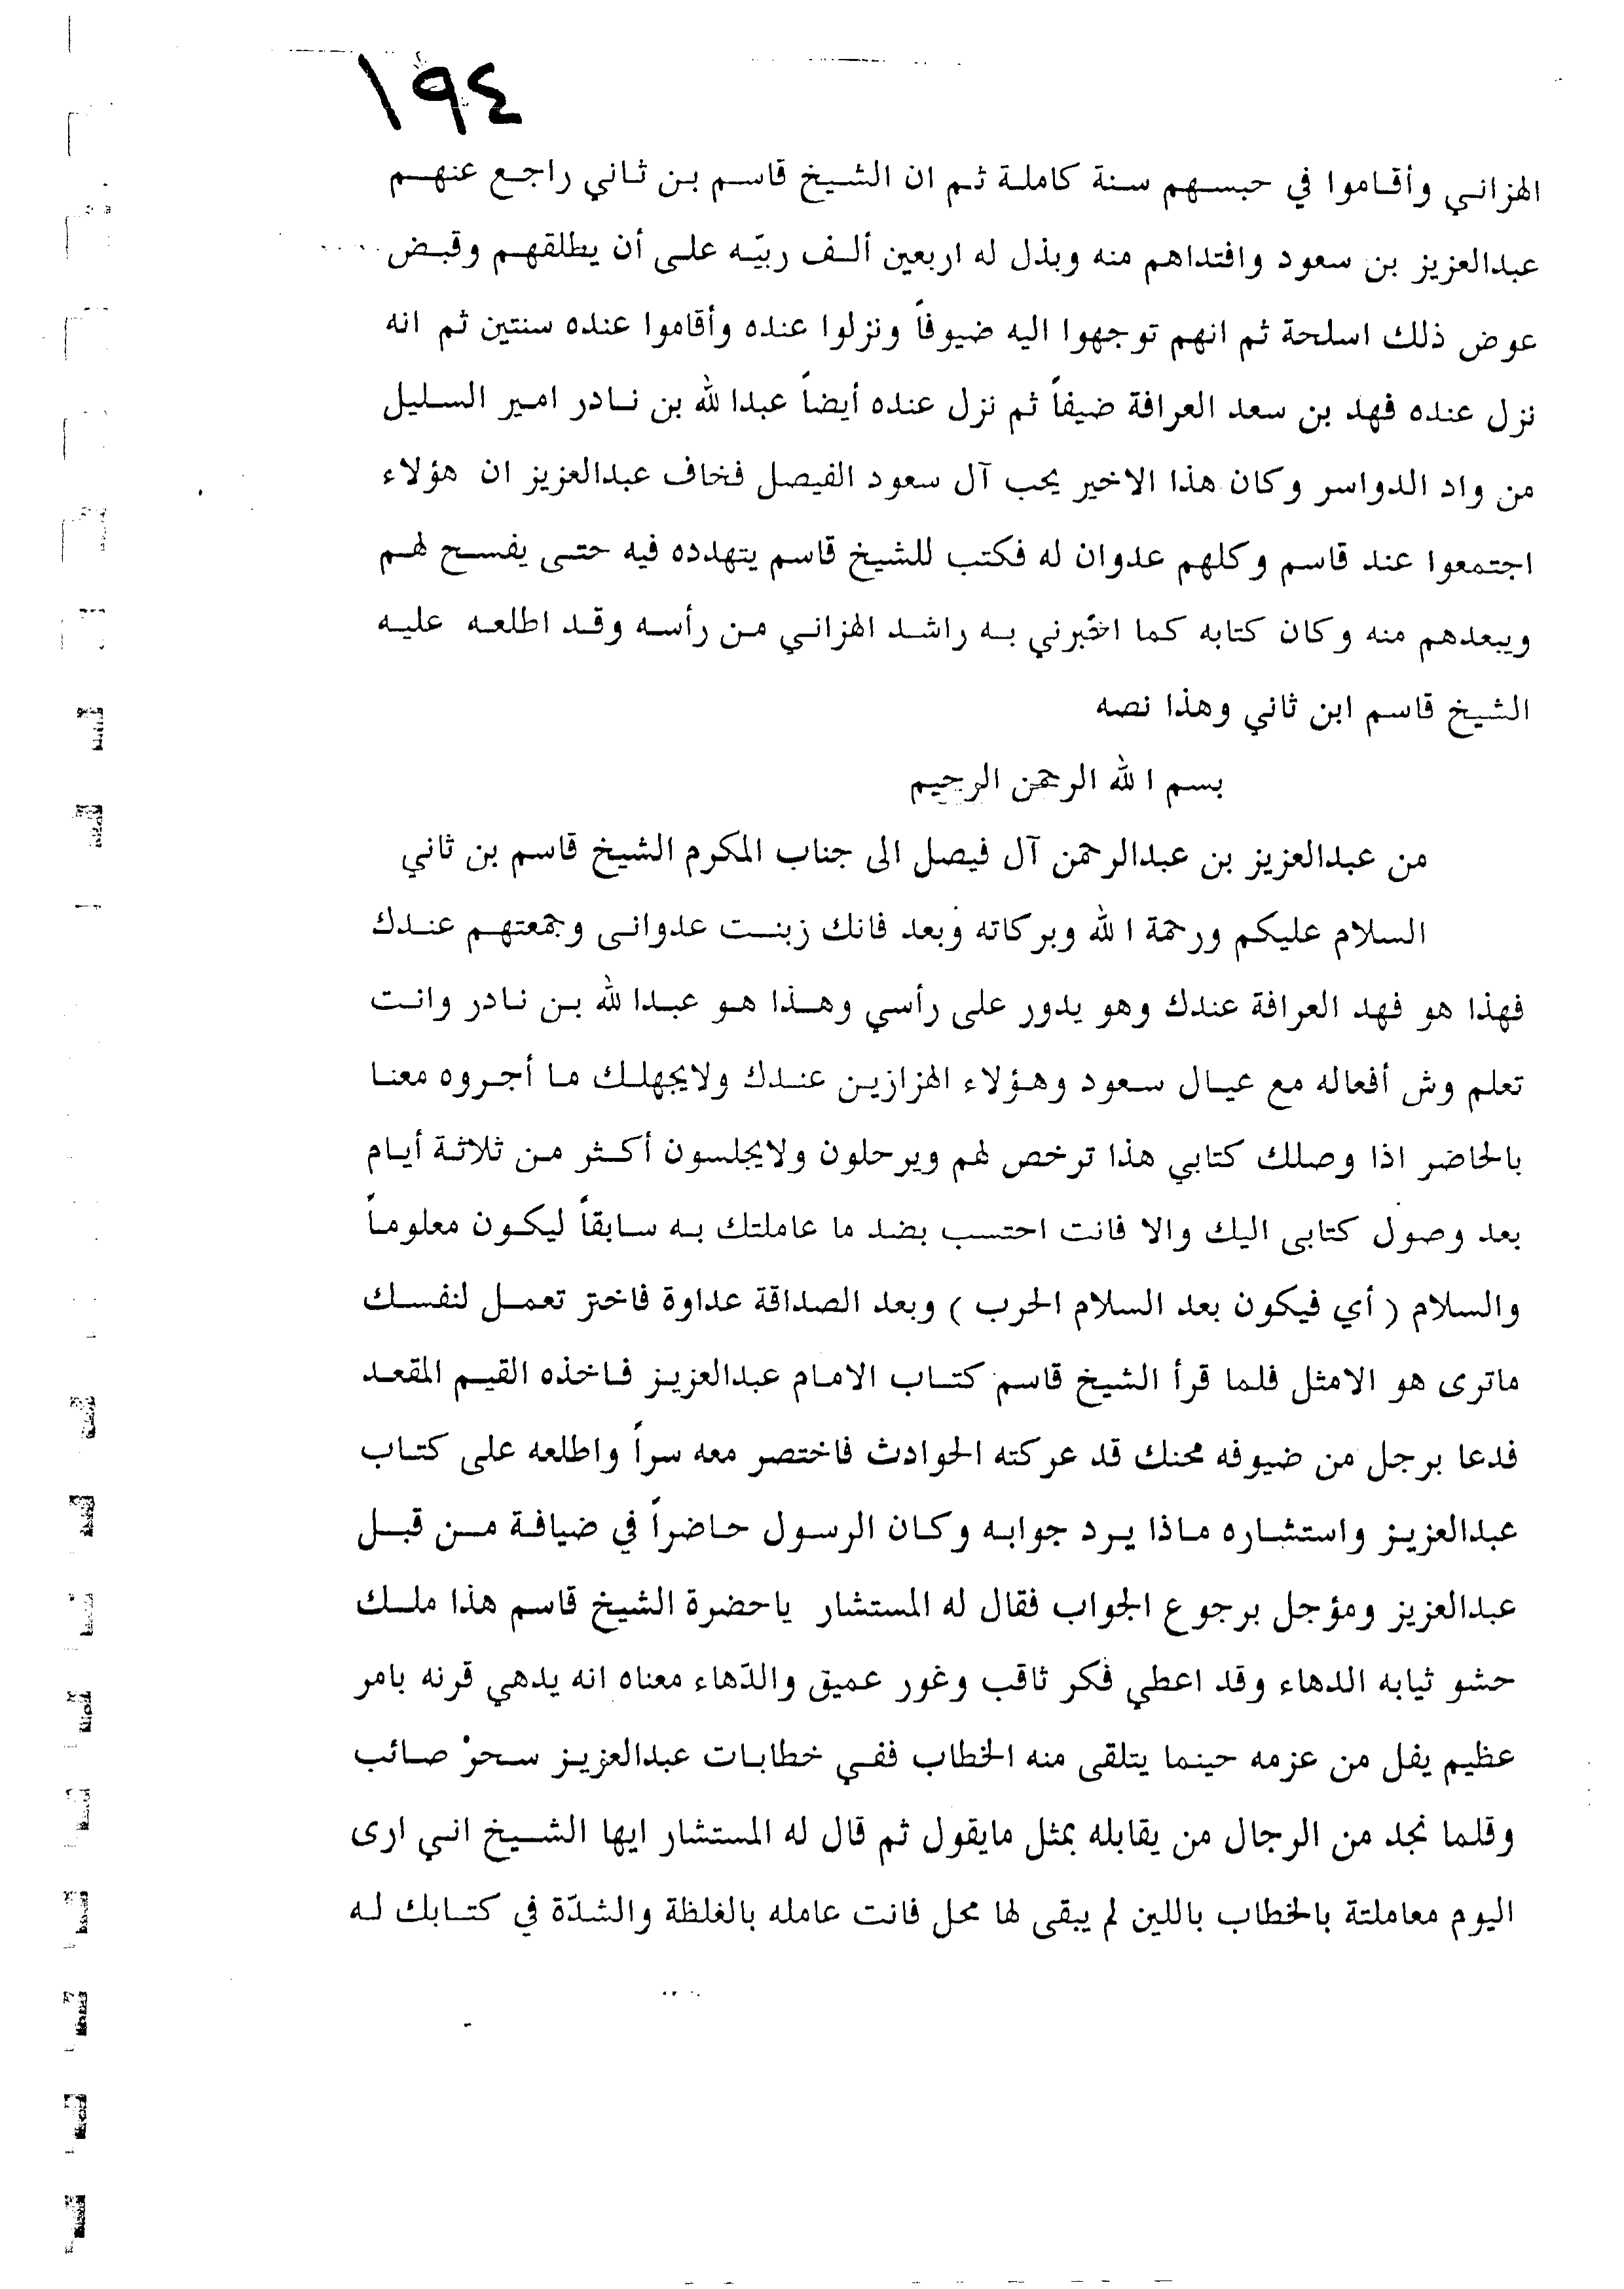 ١٩٤
الهزاني وأقاموا في حبسهم سنة كاملة ثم ان الشيخ قاسم بن ثاني راجع عنهم
عبدالعزيز بن سعود وافتداهم منه وبذل له اربعين ألف ربيّه على أن يطلقهم وقبض
عوض ذلك اسلحة ثم انهم توجهوا اليه ضيوفاً ونزلوا عنده وأقاموا عنده سنتين ثم انه
نزل عنده فهد بن سعد العرافة ضيفاً ثم نزل عنده أيضاً عبدالله بن نادر امير السليل
من واد الدواسر وكان هذا الاخير يحب آل سعود الفيصل فخاف عبدالعزيز ان هؤلاء
اجتمعوا عند قاسم وكلهم عدوان له فكتب للشيخ قاسم يتهدده فيه حتى يفسح لهم
ويبعدهم منه وكان كتابه كما اخبرني به راشد الهزاني من رأسه وقد اطلعه عليه
الشيخ قاسم ابن ثاني وهذا نصه
بسم الله الرحمن الرحيم
من عبدالعزيز بن عبدالرحمن آل فيصل الى جناب المكرم الشيخ قاسم بن ثاني
السلام عليكم ورحمة الله وبركاته وبعد فانك زبنت عدوانى وجمعتهم عندك
فهذا هو فهد العرافة عندك وهو يدور على رأسي وهذا هو عبدالله بن نادر وانت
تعلم وش أفعاله مع عيال سعود وهؤلاء الهزازين عندك ولايجهلك ما أجروه معنا
بالحاضر اذا وصلك كتابي هذا ترخص لهم ويرحلون ولايجلسون أكثر من ثلاثة أيام
بعد وصول كتابى اليك والا فانت احتسب بضد ما عاملتك به سابقاً ليكون معلوماً
والسلام ( أي فيكون بعد السلام الحرب ) وبعد الصداقة عداوة فاختر تعمل لنفسك
ماترى هو الامثل فلما قرأ الشيخ قاسم كتاب الامام عبدالعزيز فاخذه القيم المقعد
فدعا برجل من ضيوفه محنك قد عركته الحوادث فاختصر معه سراً واطلعه على كتاب
عبدالعزيز واستشاره ماذا يرد جوابه وكان الرسول حاضراً في ضيافة من قبل
عبدالعزيز ومؤجل برجوع الجواب فقال له المستشار ياحضرة الشيخ قاسم هذا ملك
حشو ثيابه الدهاء وقد اعطي فكر ثاقب وغور عميق والدّهاء معناه انه يدهي قرنه بامر
عظيم يفل من عزمه حينما يتلقى منه الخطاب ففي خطابات عبدالعزيز سحرْ صائب
وقلما نجد من الرجال من يقابله بمثل مايقول ثم قال له المستشار ايها الشيخ اني ارى
اليوم معاملتة بالخطاب باللين لم يبقى لها محل فانت عامله بالغلظة والشدّة في كتابك له